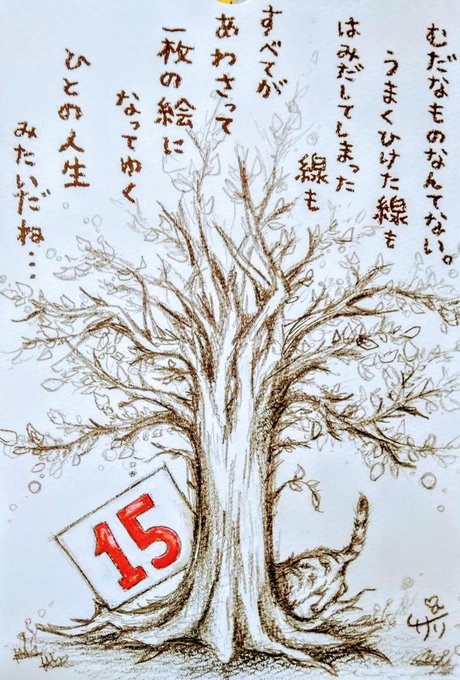 むだなものなんてない。
うまくひけた線も
はみだしてしまった
線も
すべてが
あわさって
一枚の絵に
なってゆく
ひとの人生
みたいだね…
15